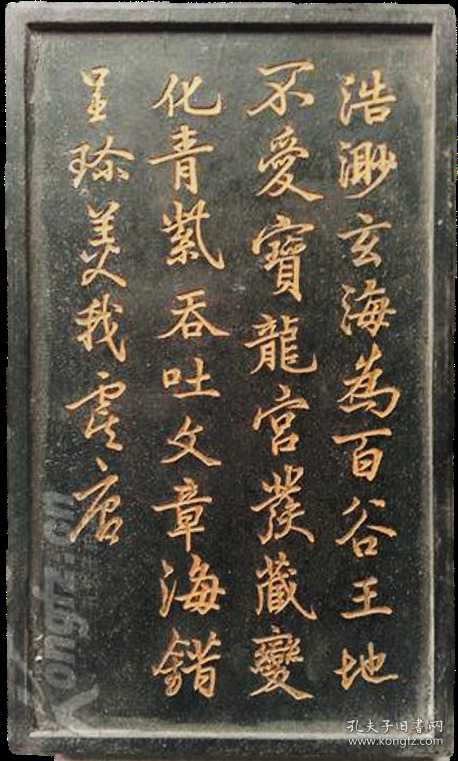 浩渺玄海為百谷王地
不愛寶龍宮發藏變
化青紫吞吐文章海錯
呈珍美我虞唐
孔夫子旧书网
www.kongfz.com
Kongfz.cn